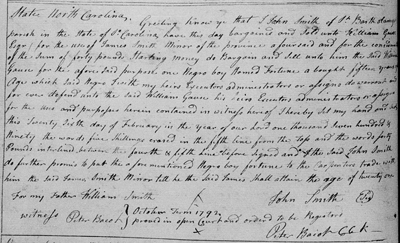 State North Carolina, Greeting know ye that I John Smith of St. Barts
parish in the State of So. Carolina have this day bargained and Sold unto William Gause
Esqr. for the use of James Smith Minor of the province aforesaid and for the consideration
of the Sum of forty pounds Starling money do Bargain and Sell unto him the Said William
Gause for the aforesaid purpose one Negro boy Named Fortune a bought
age which Said Negro I with my heirs Executors administrators or assigns do warrant and
for ever defend unto the Said William Gause his heirs Executors administrators or assigns
for the use and purposes herein contained in witness hereof I hereby Set my hand and Seal
this Twenty Sixth day of February in the year of our Lord one thousand Seven hundred &
Ninety the words five Shillings erased in the fifth line from the Top and the words forty
Pounds interlined between the fourth & fifth line before Signed and I the Said John Smith
do further promise to put the aforementioned Negro boy fortune to the carpenters trade with
him the Said James Smith Minor till he the Said James Shall attain the age of twenty one
For my Father William Smith John Smith
witness Peter Bacot October Term 1792
proved in open Court and ordered to be Registered
Petr. Bacot C C k